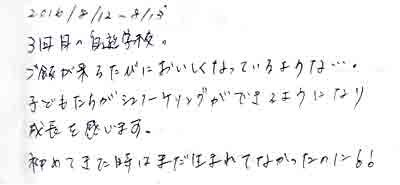 2016/8/12〜8/15
3回目の自遊学校。
ご飯が来るたびにおいしくなっているような…。
子どもたちがシュノーケリングができるようになり
成長を感じます。
初めてきた時はまだ生まれてなかったのに66